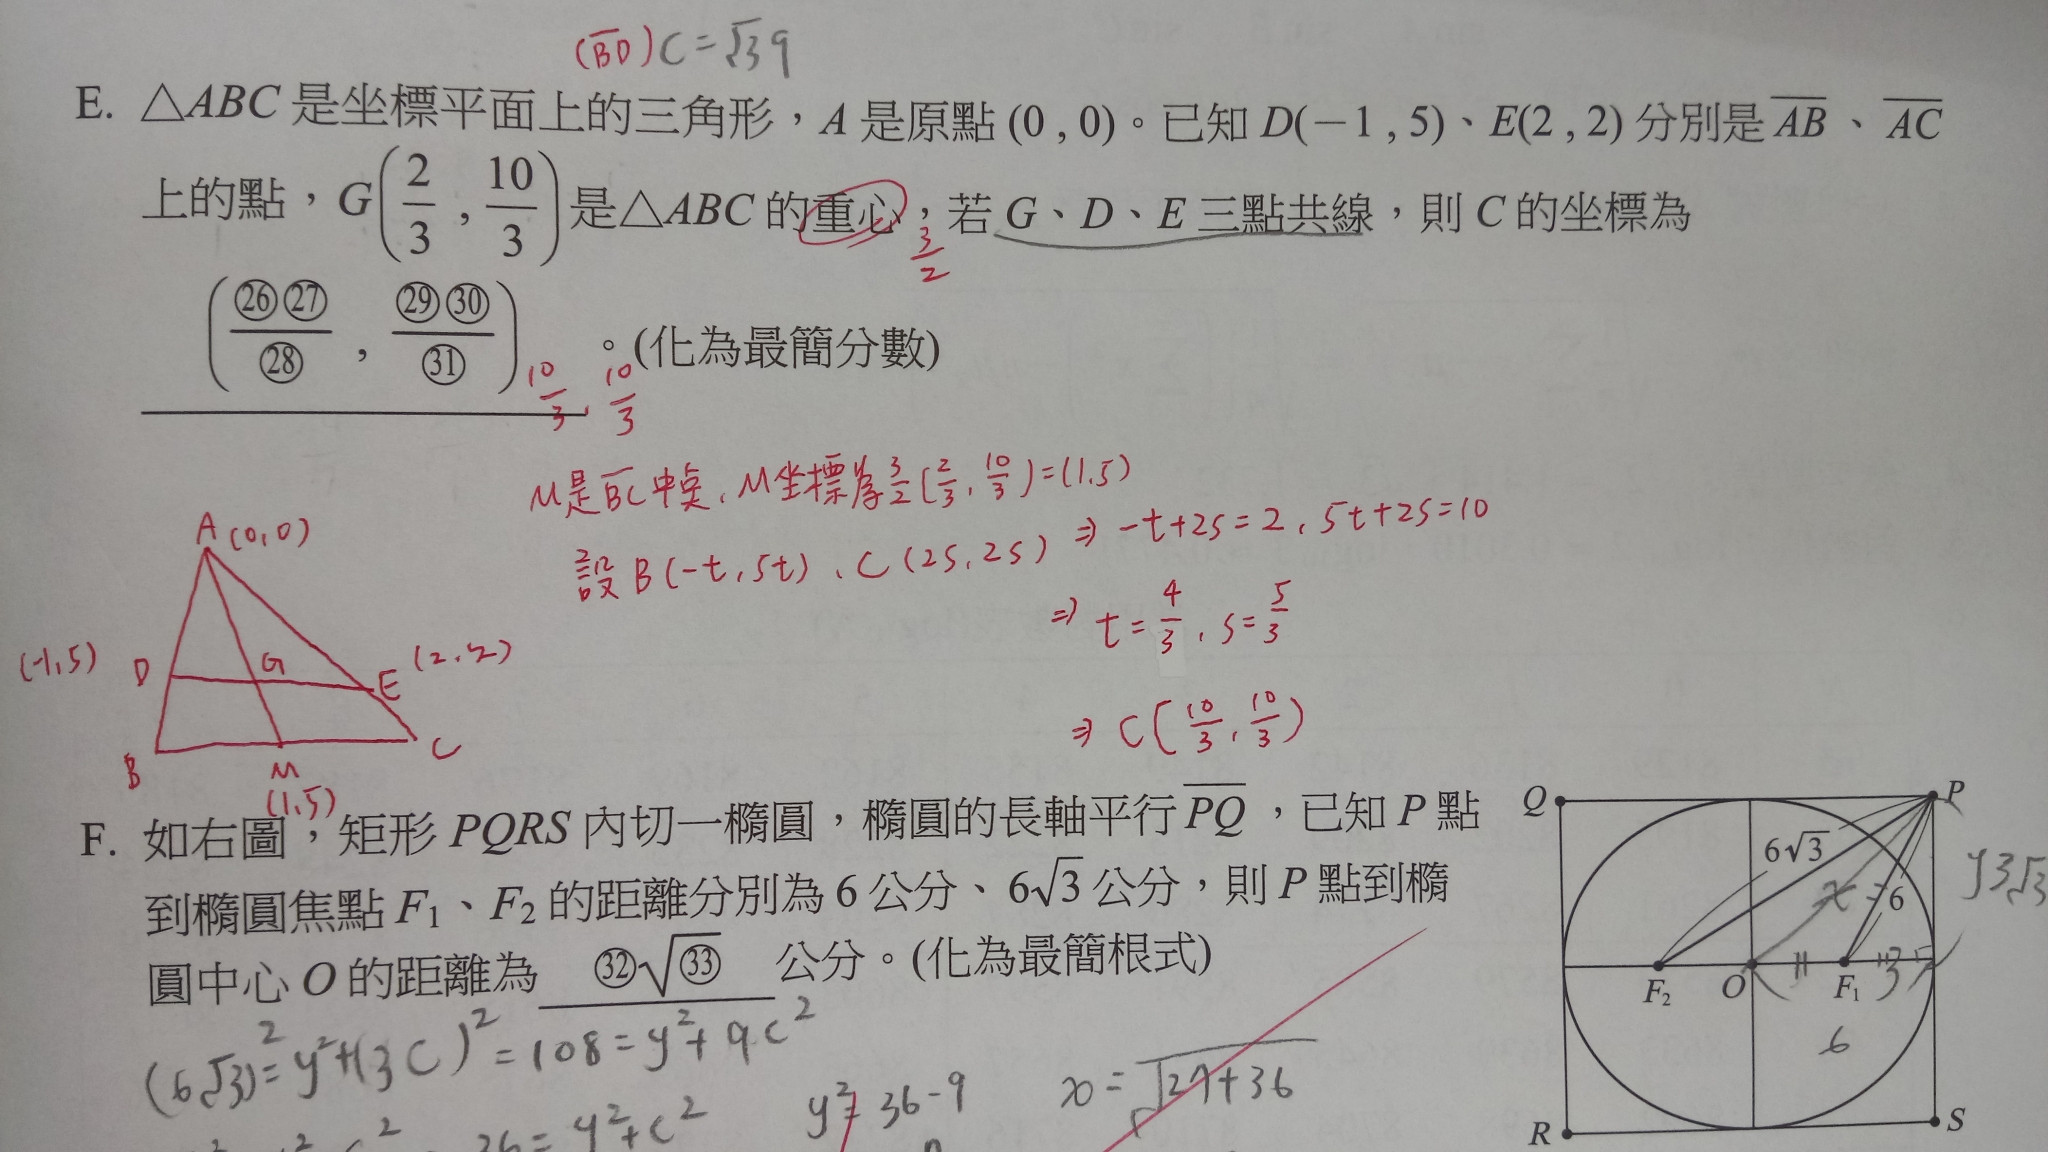 (B̅D̅)C=√39
E. △ABC 是坐標平面上的三角形，A 是原點 (0 , 0)。已知 D(－1 , 5)、E(2 , 2) 分別是 A̅B̅ 、 A̅C̅
上的點，G(2/3 , 10/3) 是△ABC 的重心，若 G、D、E 三點共線，則 C 的坐標為
3/2
(㉖㉗/㉘ , ㉙㉚/㉛) 。(化為最簡分數)
10/3, 10/3
M是B̅C̅中點, M坐標為3/2(2/3, 10/3)=(1,5)
設B(-t,5t)、C(2s,2s) ⇒ -t+2s=2, 5t+2s=10
⇒ t=4/3, s=5/3
⇒ C(10/3, 10/3)
A(0,0)
(-1,5) D G E (2,2)
B M C
(1,5)
F. 如右圖，矩形 PQRS 內切一橢圓，橢圓的長軸平行 P̅Q̅ ，已知 P 點
到橢圓焦點 F₁、F₂ 的距離分別為 6 公分、6√3 公分，則 P 點到橢
圓中心 O 的距離為 ㉜√㉝ 公分。(化為最簡根式)
Q P
6√3
x 6 y 3√3
F₂ O F₁ 3
6
R S
(6√3)²=y²+(3c)²=108=y²+9c²
36=y²+c²
y²=36-9
x=√27+36